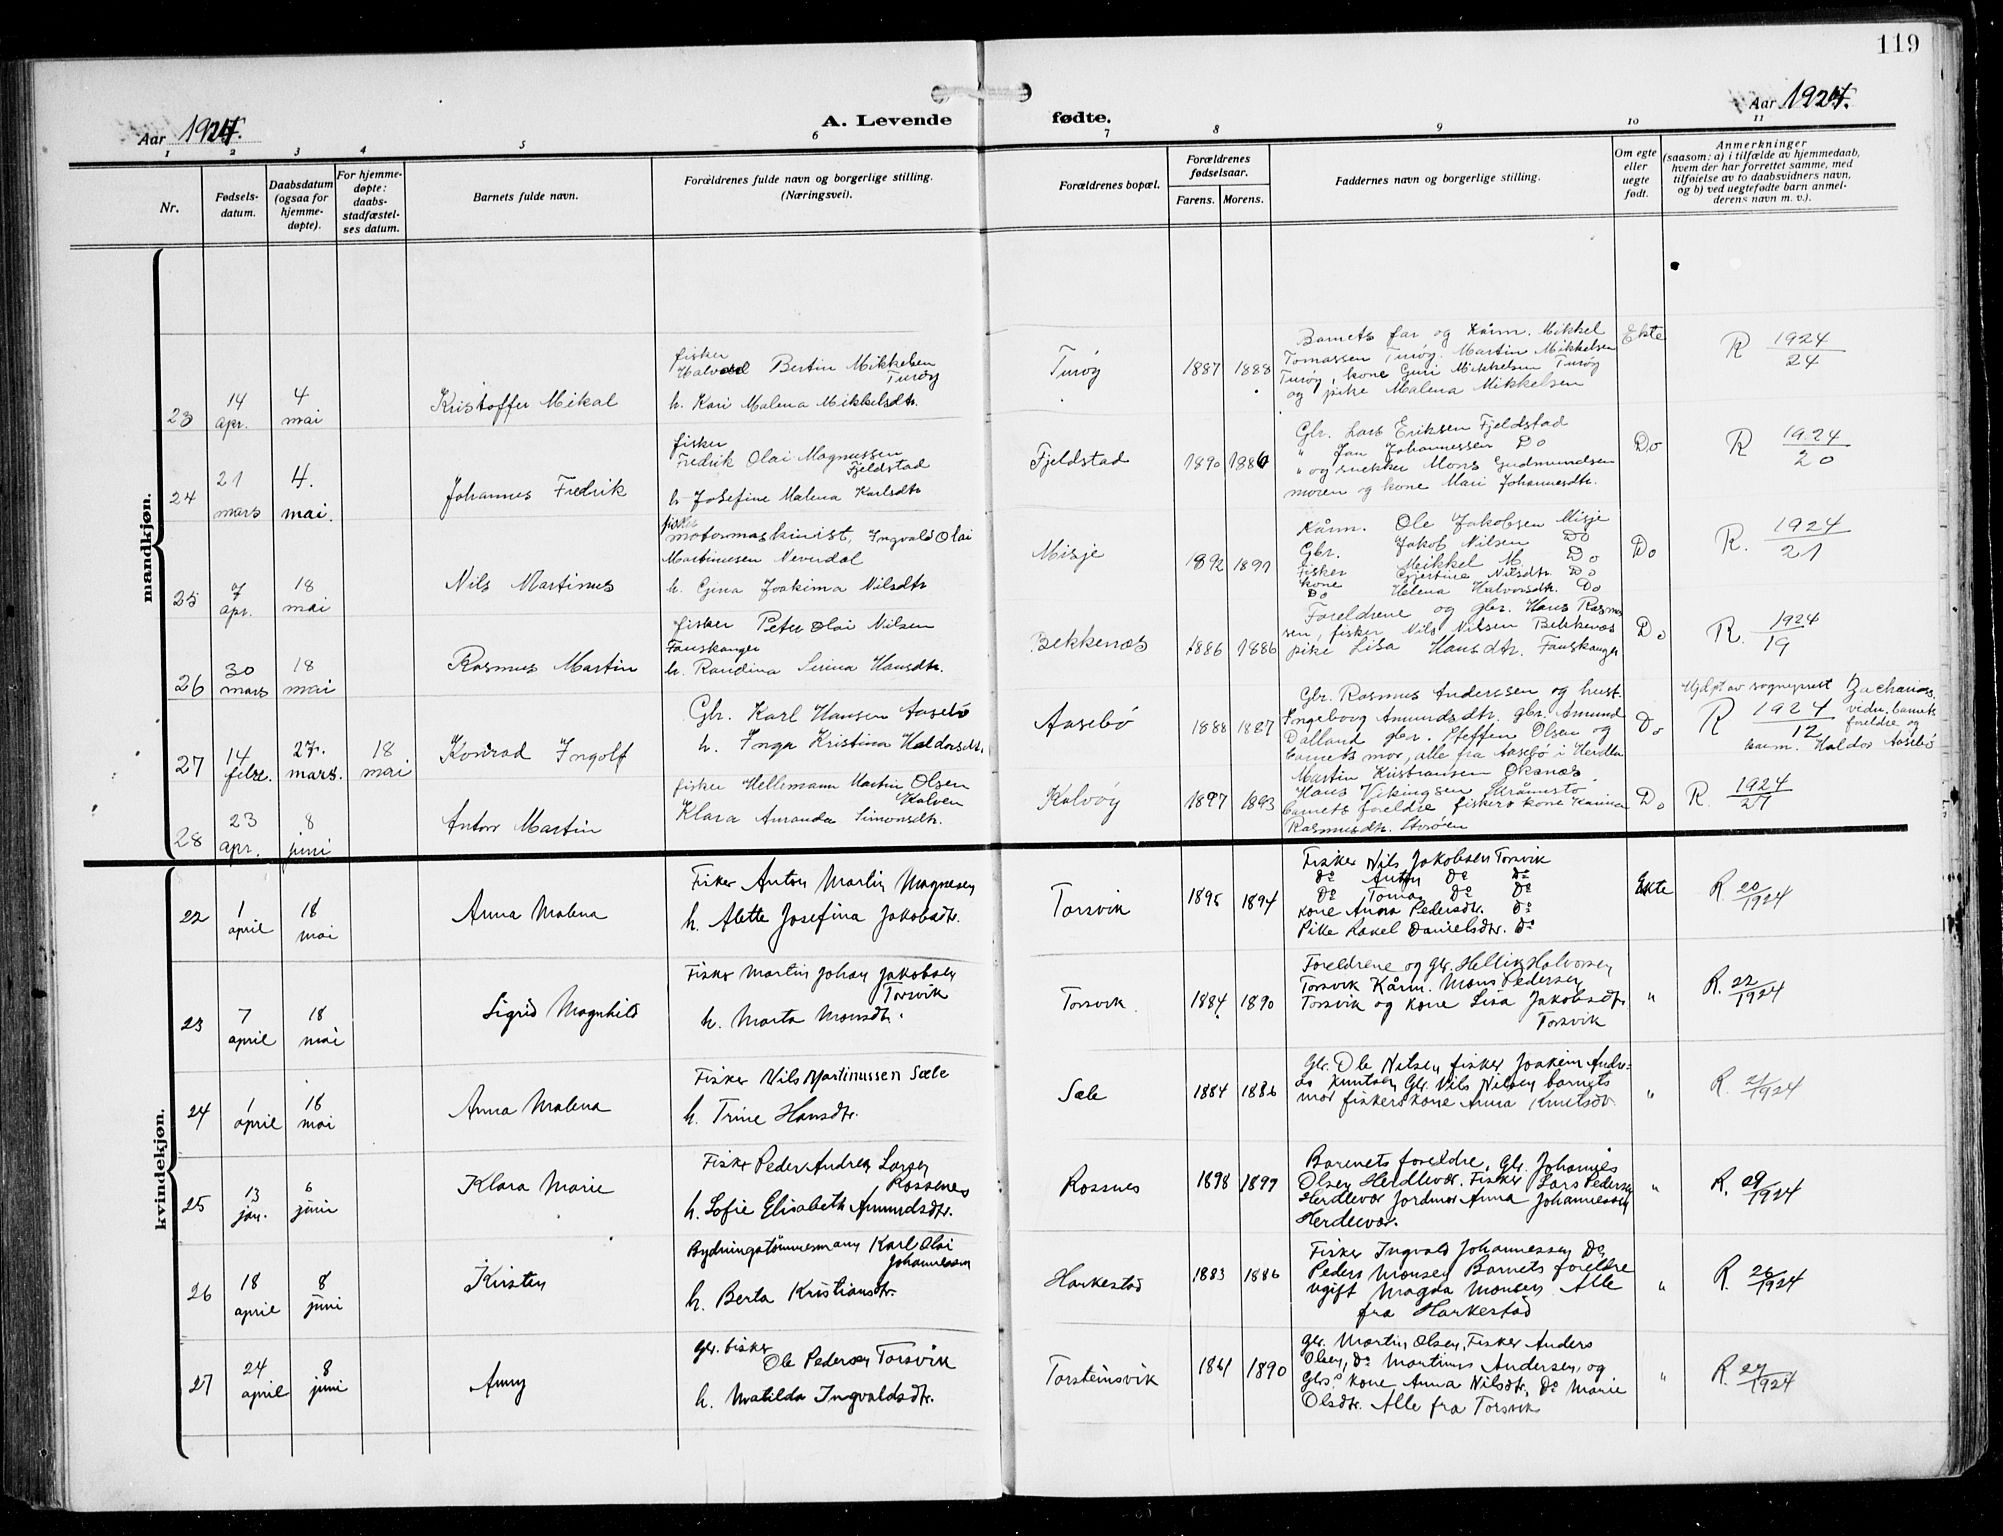 119
Aar 1924.
A. Levende fødte.
Aar 1924.
1 2 3 4 5 6 7 8 9 10 11
Nr.
Fødsels-
datum.
Daabsdatum
(ogsaa for
hjemme-
døpte).
For hjemme-
døpte:
daabs-
stadfæstel-
ses datum.
Barnets fulde navn.
Forældrenes fulde navn og borgerlige stilling.
(Næringsvei).
Forældrenes bopæl.
Forældrenes
fødselsaar.
Farens. Morens.
Faddernes navn og borgerlige stilling.
Om egte
eller
uegte
født.
Anmerkninger
(saasom: a) i tilfælde av hjemmedaab,
hvem der har forrettet samme, med
tilføielse av to daabsvidners navn,
og b) ved uegtefødte barn anmel-
derens navn m. v.).
mandkjøn.
23
14
apr.
4
mai
Kristoffer Mikal
fisker
Halvard Bertin Mikkelsen
Turøy
h. Kari Malena Mikkelsdtr.
Turøy
1887 1888
Barnets far og kårm. Mikkel
Tomassen Turøy, Martin Mikkelsen
Turøy, kone Guri Mikkelsen Turøy
og pike Malena Mikkelsen
Ekte
R 1924/24
24
21
mars
4.
mai.
Johannes Fredrik
fisker
Fredrik Olai Magnussen
Fjeldstad
h. Josefine Malena Karlsdtr
Fjeldstad
1890 1886
Gbr. Lars Eriksen Fjeldstad
" Jan Johannessen Do
" og snekker Mons Gudmundsen
moren og kone Mari Johannesdtr.
Do
R 1924/20
25
7
apr.
18
mai
Nils Martinus
fisker
motormaskinist, Ingvald Olai
Martinusen Neverdal
h. Gjina Joakima Nilsdtr
Misje
1892 1891
Kårm. Ole Jakobsen Misje
Gbr. Jakob Nilsen Do
fisker Mikkel M. Do
kone Gjertine Nilsdtr. Do
Do Helena Halvorsdtr. Do
Do
R. 1924/21
26
30
mars
18
mai
Rasmus Martin
fisker Peter Olai Nilsen
Fauskanger
h. Randina Serina Hansdtr.
Bekkenæs
1886 1886
Foreldrene og gbr. Hans Rasmus
sen, fisker Nils Nilsen Bekkenæs
pike Lisa Hansdtr. Fauskanger
Do
R. 1924/19
27
14
febr.
27.
mars.
18
mai
Konrad Ingolf
Gbr. Karl Hansen Aasebø
h. Inga Kristina Haldorsdtr.
Aasebø
1888 1887
Gbr. Rasmus Anderssen og hust.
Ingeborg Amundsdtr. gbr. Amund
Dalland gbr. Steffen Olsen og
barnets mor, alle fra Aasebø i Herdla
Do
Hjdpt av sogneprest Zacharias.
R 1924/12 vidn. barnets
foreldre og
Haldor Aasebø
28
23
apr.
8
juni
Anton Martin
fisker Hellemann Martin Olsen
Kalven
Klara Amanda Simonsdtr.
Kalvøy
1897 1893
Martin Kristiansen Oksnes
Hans Vikingsen
barnets foreldre fiskers kone Karina
Rasmusdtr. Storøen
Do
R. 1924/27
kvindekjøn.
22
1
april
18
mai
Anna Malena
Fisker Anton Martin Magnesen
h. Alette Josefina Jakobsdtr.
Torsvik
1895 1894
Fisker Nils Jakobsen Torsvik
Do Anton Do Do
Do Tomas Do Do
Kone Anna Pedersdtr. Do
Pike Rakel Danielsdtr. Do
Ekte
R. 20/1924
23
7
april
18
mai
Sigrid Magnhild
Fisker Martin Johan Jakobsen
Torsvik
h. Marta Monsdtr.
Torsvik.
1884 1890
Foreldrene og gbr. Hellik Halvorsen
Torsvik Kårm. Mons Pedersen
Torsvik og kone Lisa Jakobsdtr.
Torsvik
"
R. 22/1924
24
1
april
18
mai
Anna Malena
Fisker Nils Martinussen Sæle
h. Trine Hansdtr.
Sæle
1884 1886
Gbr. Ole Nilsen fisker Joakim Andre-
as Knutsen Gbr. Nils Nilsen barnets
mor fiskerskone Anna Knutsdtr.
"
R. 21/1924
25
13
jan.
6
juni
Klara Marie
Fisker Peder Andreas Larsen
Rossnes
h. Sofie Elisabeth Amundsdtr.
Rossnes
1898 1899
Barnets foreldre, Gbr. Johannes
Olsen Herdlevær. Fisker Lars Pedersen
Herdlevær Jordmor Anna Johannessen
Herdlevær.
"
R. 29/1924
26
18
april
8
juni
Kirsten
Bydningstømmermann Karl Olai
Johannessen
h. Berta Kristiansdtr.
Harkestad
1883 1886
Fisker Ingvald Johannessen Do
Peder Monsen Barnets foreldre
ugift Magda Monsen. Alle
fra Harkestad
"
R. 26/1924
27
24
april
8
juni
Anny
gbr. fisker
Ole Pedersen Torsvik
h. Matilda Ingvaldsdtr.
Torsteinsvik
1861 1890
gbr. Martin Olsen, Fisker Anders
Olsen, Do Martinus Andersen, og
Gbrs. kone Anna Nilsdtr, Do Marie
Olsdtr. Alle fra Torsvik
"
R. 27/1924